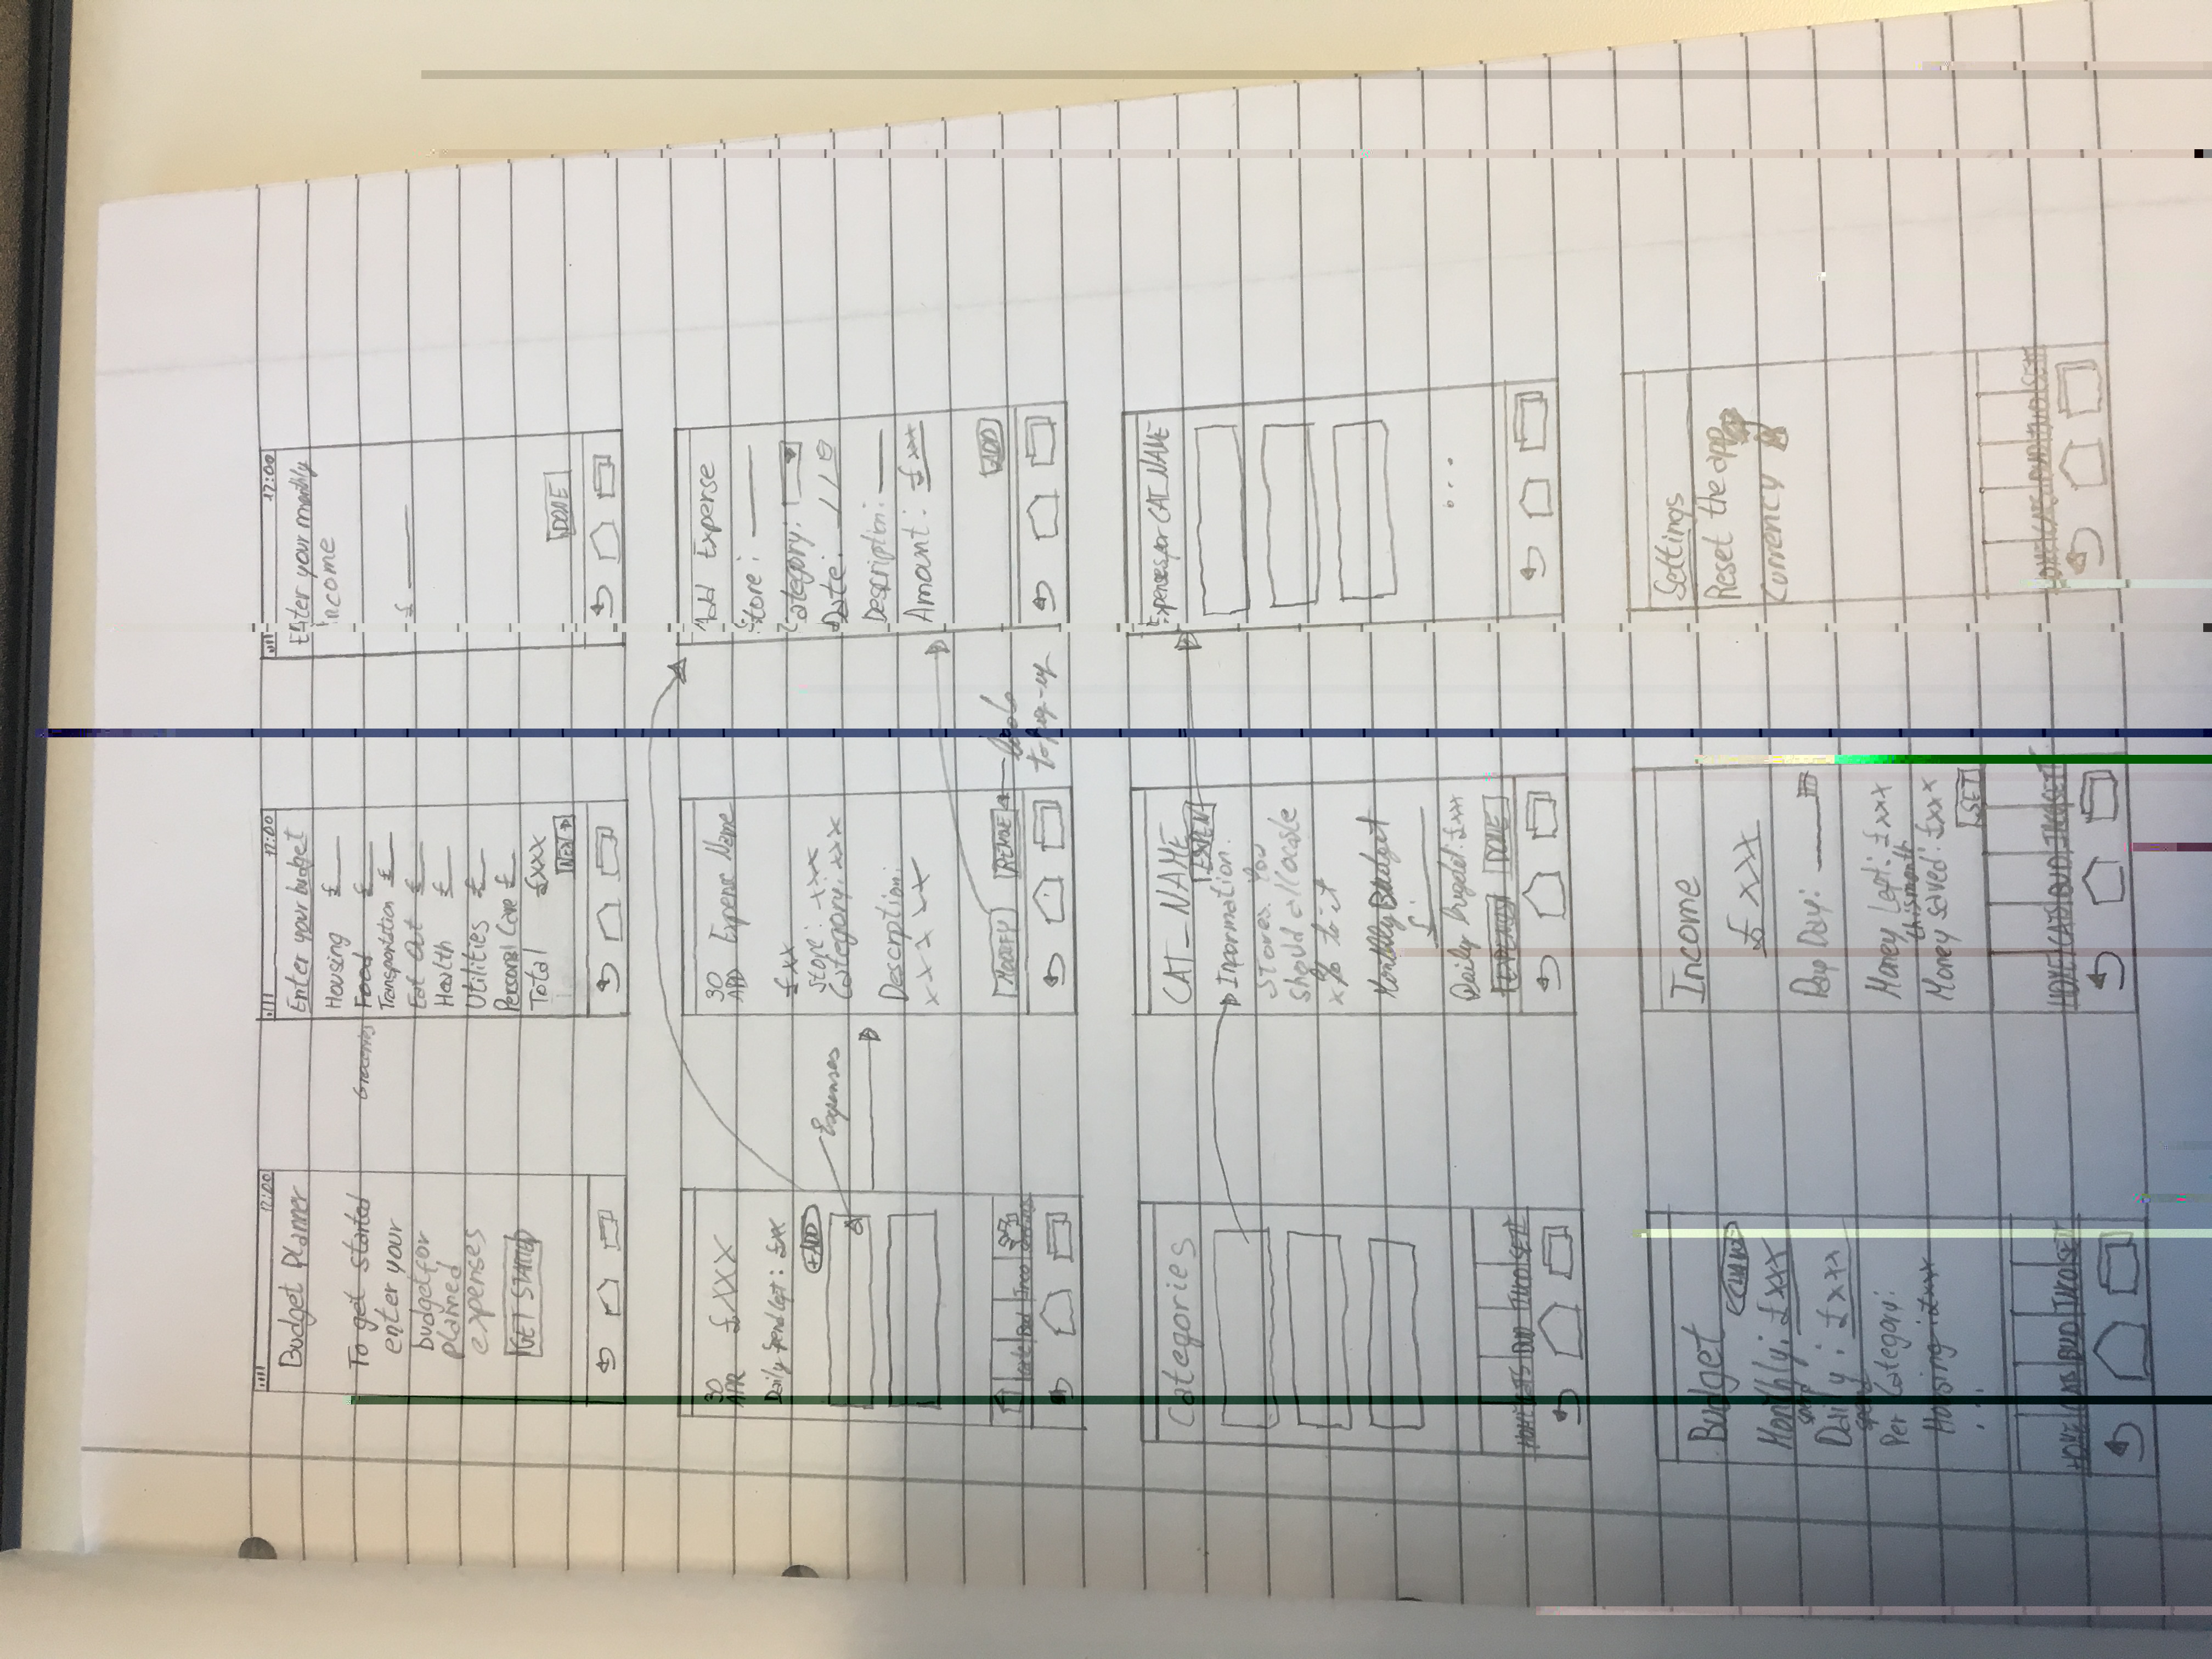 12:00
Budget Planner
To get started
enter your
budget for
planned
expenses
GET STARTED
12:00
Enter your budget
Housing £
Groceries Food £
Transportation £
Eat Out £
Health £
Utilities £
Personal Care £
Total £xxx
NEXT
12:00
Enter your monthly
income
£
DONE
30
APR
£XXX
Daily Spend left: £xx
+ADD
Expenses
Cate Bud Inco Settings
30
Expense Name
£xx
Store: xxx
Category: xxx
Descrption:
x x x x x
MODIFY
to pop-up
Add Expense
Store:
Category:
Date: / /
Description:
Amount: £xxx
ADD
Categories
HOME CATS BUD INCO SETT
CAT_NAME
EXPEN
Information.
Stores. You
should allocate
x% to it
Monthly Budget
£
Daily bugdet: £xxx
EXPENSES DONE
Expenses for CAT_NAME
...
Budget
Monthly: £xxx
spend
Daily: £xxx
spend
Per Category:
Housing: £xxx
...
HOME CATS BUD INCO SETT
Income
£xxx
Pay Day:
Money Left: £xxx
this month
Money saved: £xxx
SET
HOME CATS BUD INCO SETT
Settings
Reset the app
Currency
HOME CATS BUD INCO SETT